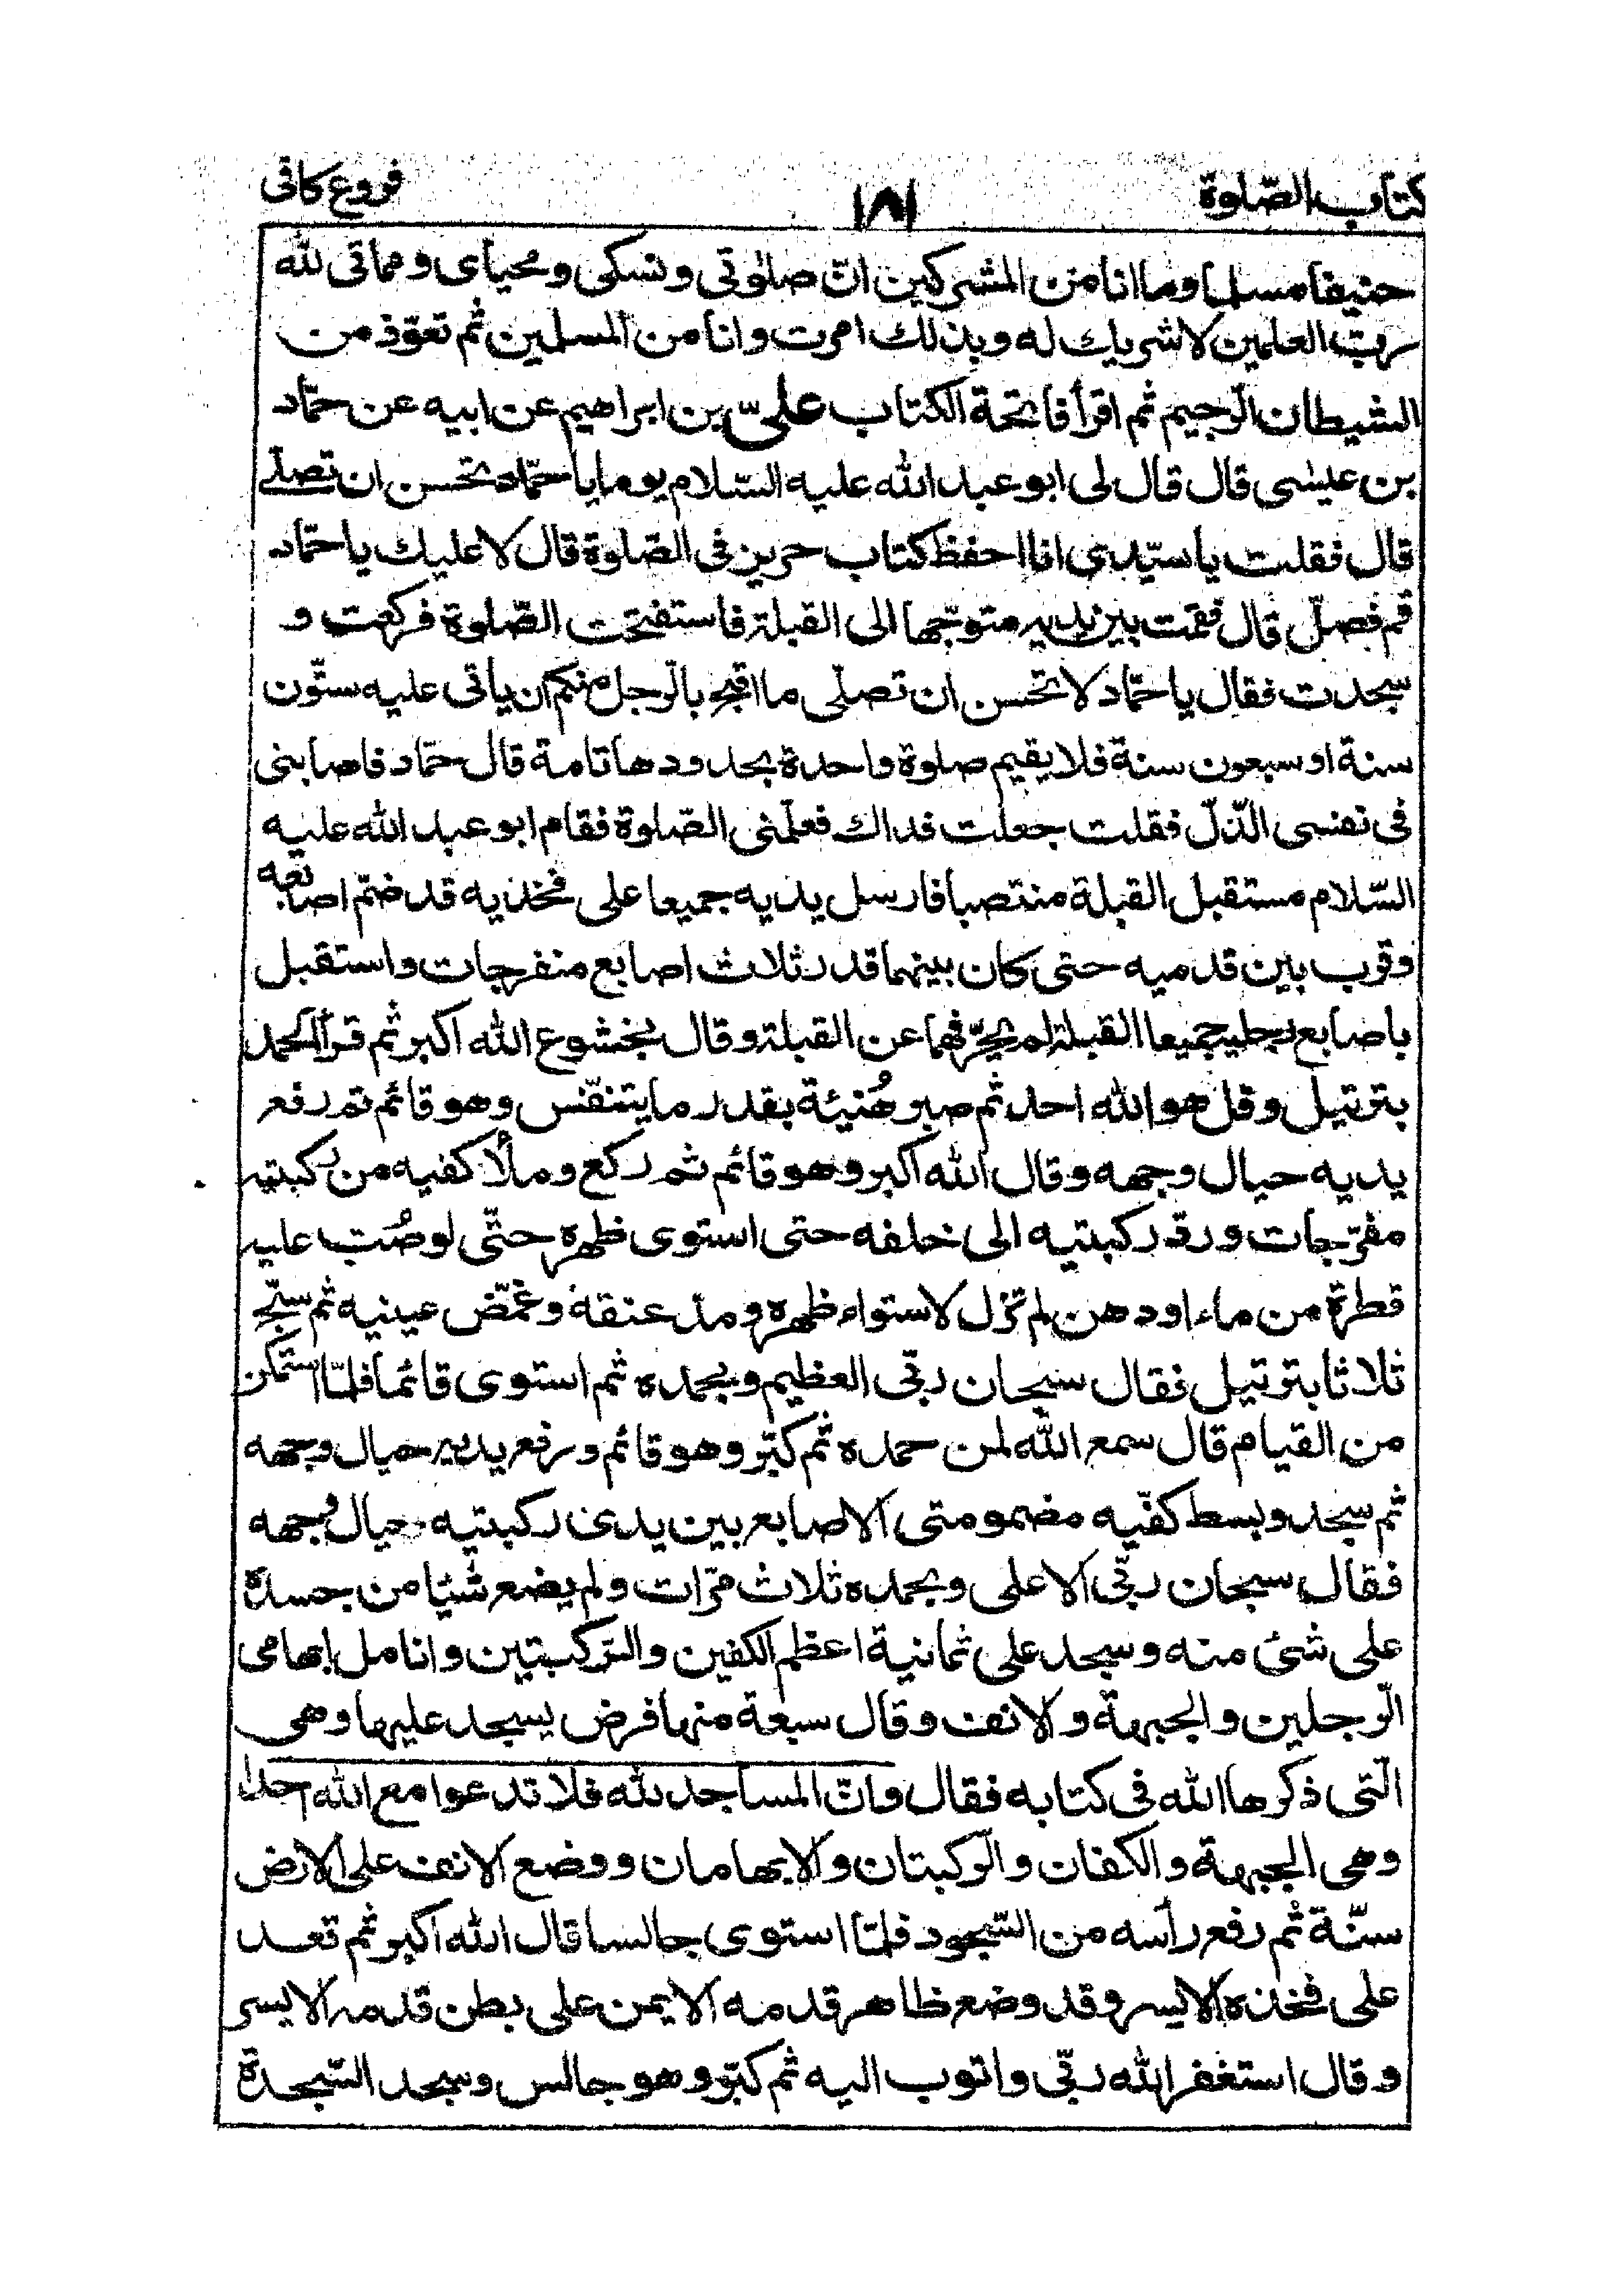 كتاب الصّلوة ١٨١ فروع كافى
حنيفا مسلما وما انا من المشركين انّ صلوتى ونسكى ومحياى ومماتى لله
ربّ العلمين لا شريك له وبذلك امرت وانا من المسلمين ثم تعوّذ من
الشيطان الرّجيم ثم اقرأ فاتحة الكتاب علىّ بن ابراهيم عن ابيه عن حمّاد
بن عيسى قال قال لى ابو عبد الله عليه السّلام يوما يا حمّاد تحسن ان تصلّى
قال فقلت يا سيّدى انا احفظ كتاب حريز فى الصّلوة قال لا عليك يا حمّاد
قم فصلّ قال فقمت بين يديه متوجّها الى القبلة فاستفتحت الصّلوة فركعت و
سجدت فقال يا حمّاد لا تحسن ان تصلّى ما اقبح بالرّجل منكم ان ياتى عليه ستّون
سنة او سبعون سنة فلا يقيم صلوة واحدة بحدودها تامة قال حمّاد فاصابنى
فى نفسى الذّلّ فقلت جعلت فداك فعلّمنى الصّلوة فقام ابو عبد الله عليه
السّلام مستقبل القبلة منتصبا فارسل يديه جميعا على فخذيه قد ضمّ اصابعه
وقرب بين قدميه حتى كان بينهما قدر ثلاث اصابع منفرجات واستقبل
باصابع رجليه جميعا القبلة لم يحرّفهما عن القبلة وقال بخشوع الله اكبر ثم قرأ الحمد
بترتيل وقل هو الله احد ثم صبر هُنيئة بقدر ما يتنفّس وهو قائم ثم رفع
يديه حيال وجهه وقال الله اكبر وهو قائم ثم ركع وملأ كفيه من ركبتيه
مفرّجات وردّ ركبتيه الى خلفه حتى استوى ظهره حتّى لو صُبّ عليه
قطرة من ماء او دهن لم تزل لاستواء ظهره ومدّ عنقه وغمّض عينيه ثم سبّح
ثلاثا بترتيل فقال سبحان ربّى العظيم وبحمده ثم استوى قائما فلمّا استمكن
من القيام قال سمع الله لمن حمده ثم كبّر وهو قائم ورفع يديه حيال وجهه
ثم سجد وبسط كفّيه مضمومتى الاصابع بين يدى ركبتيه حيال وجهه
فقال سبحان ربّى الاعلى وبحمده ثلاث مرّات ولم يضع شيئا من جسده
على شئ منه وسجد على ثمانية اعظم الكفين والرّكبتين وانامل ابهامى
الرّجلين والجبهة والانف وقال سبعة منها فرض يسجد عليها وهى
الّتى ذكرها الله فى كتابه فقال وانّ المساجد لله فلا تدعوا مع الله احدا
وهى الجبهة والكفان والرّكبتان والابهامان ووضع الانف على الارض
سنّة ثم رفع رأسه من السّجود فلمّا استوى جالسا قال الله اكبر ثم قعد
على فخذه الايسر وقد وضع ظاهر قدمه الايمن على بطن قدمه الايسر
وقال استغفر الله ربّى واتوب اليه ثم كبّر وهو جالس وسجد السّجدة